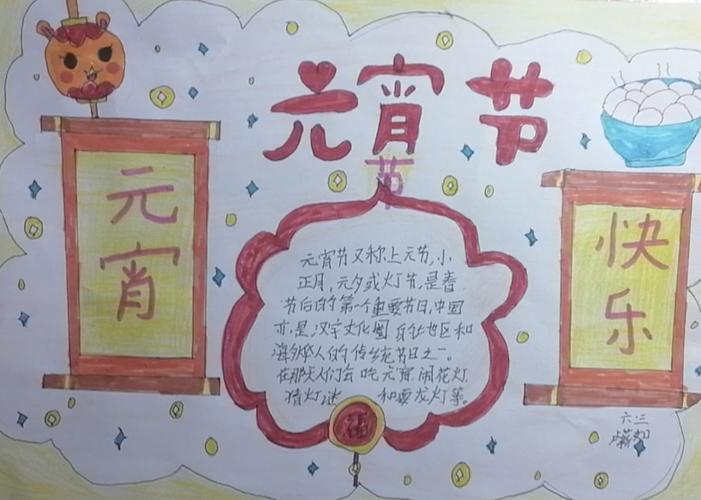 元宵节
节
元宵
快乐
元宵节又称上元节,小
正月,元夕或灯节,是春
节后的第一个重要节日,中国
亦是汉字文化圈的地区和
海外华人的传统节日之一。
在那天人们会吃元宵,闹花灯,
猜灯谜 和耍龙灯等。
福
六.三